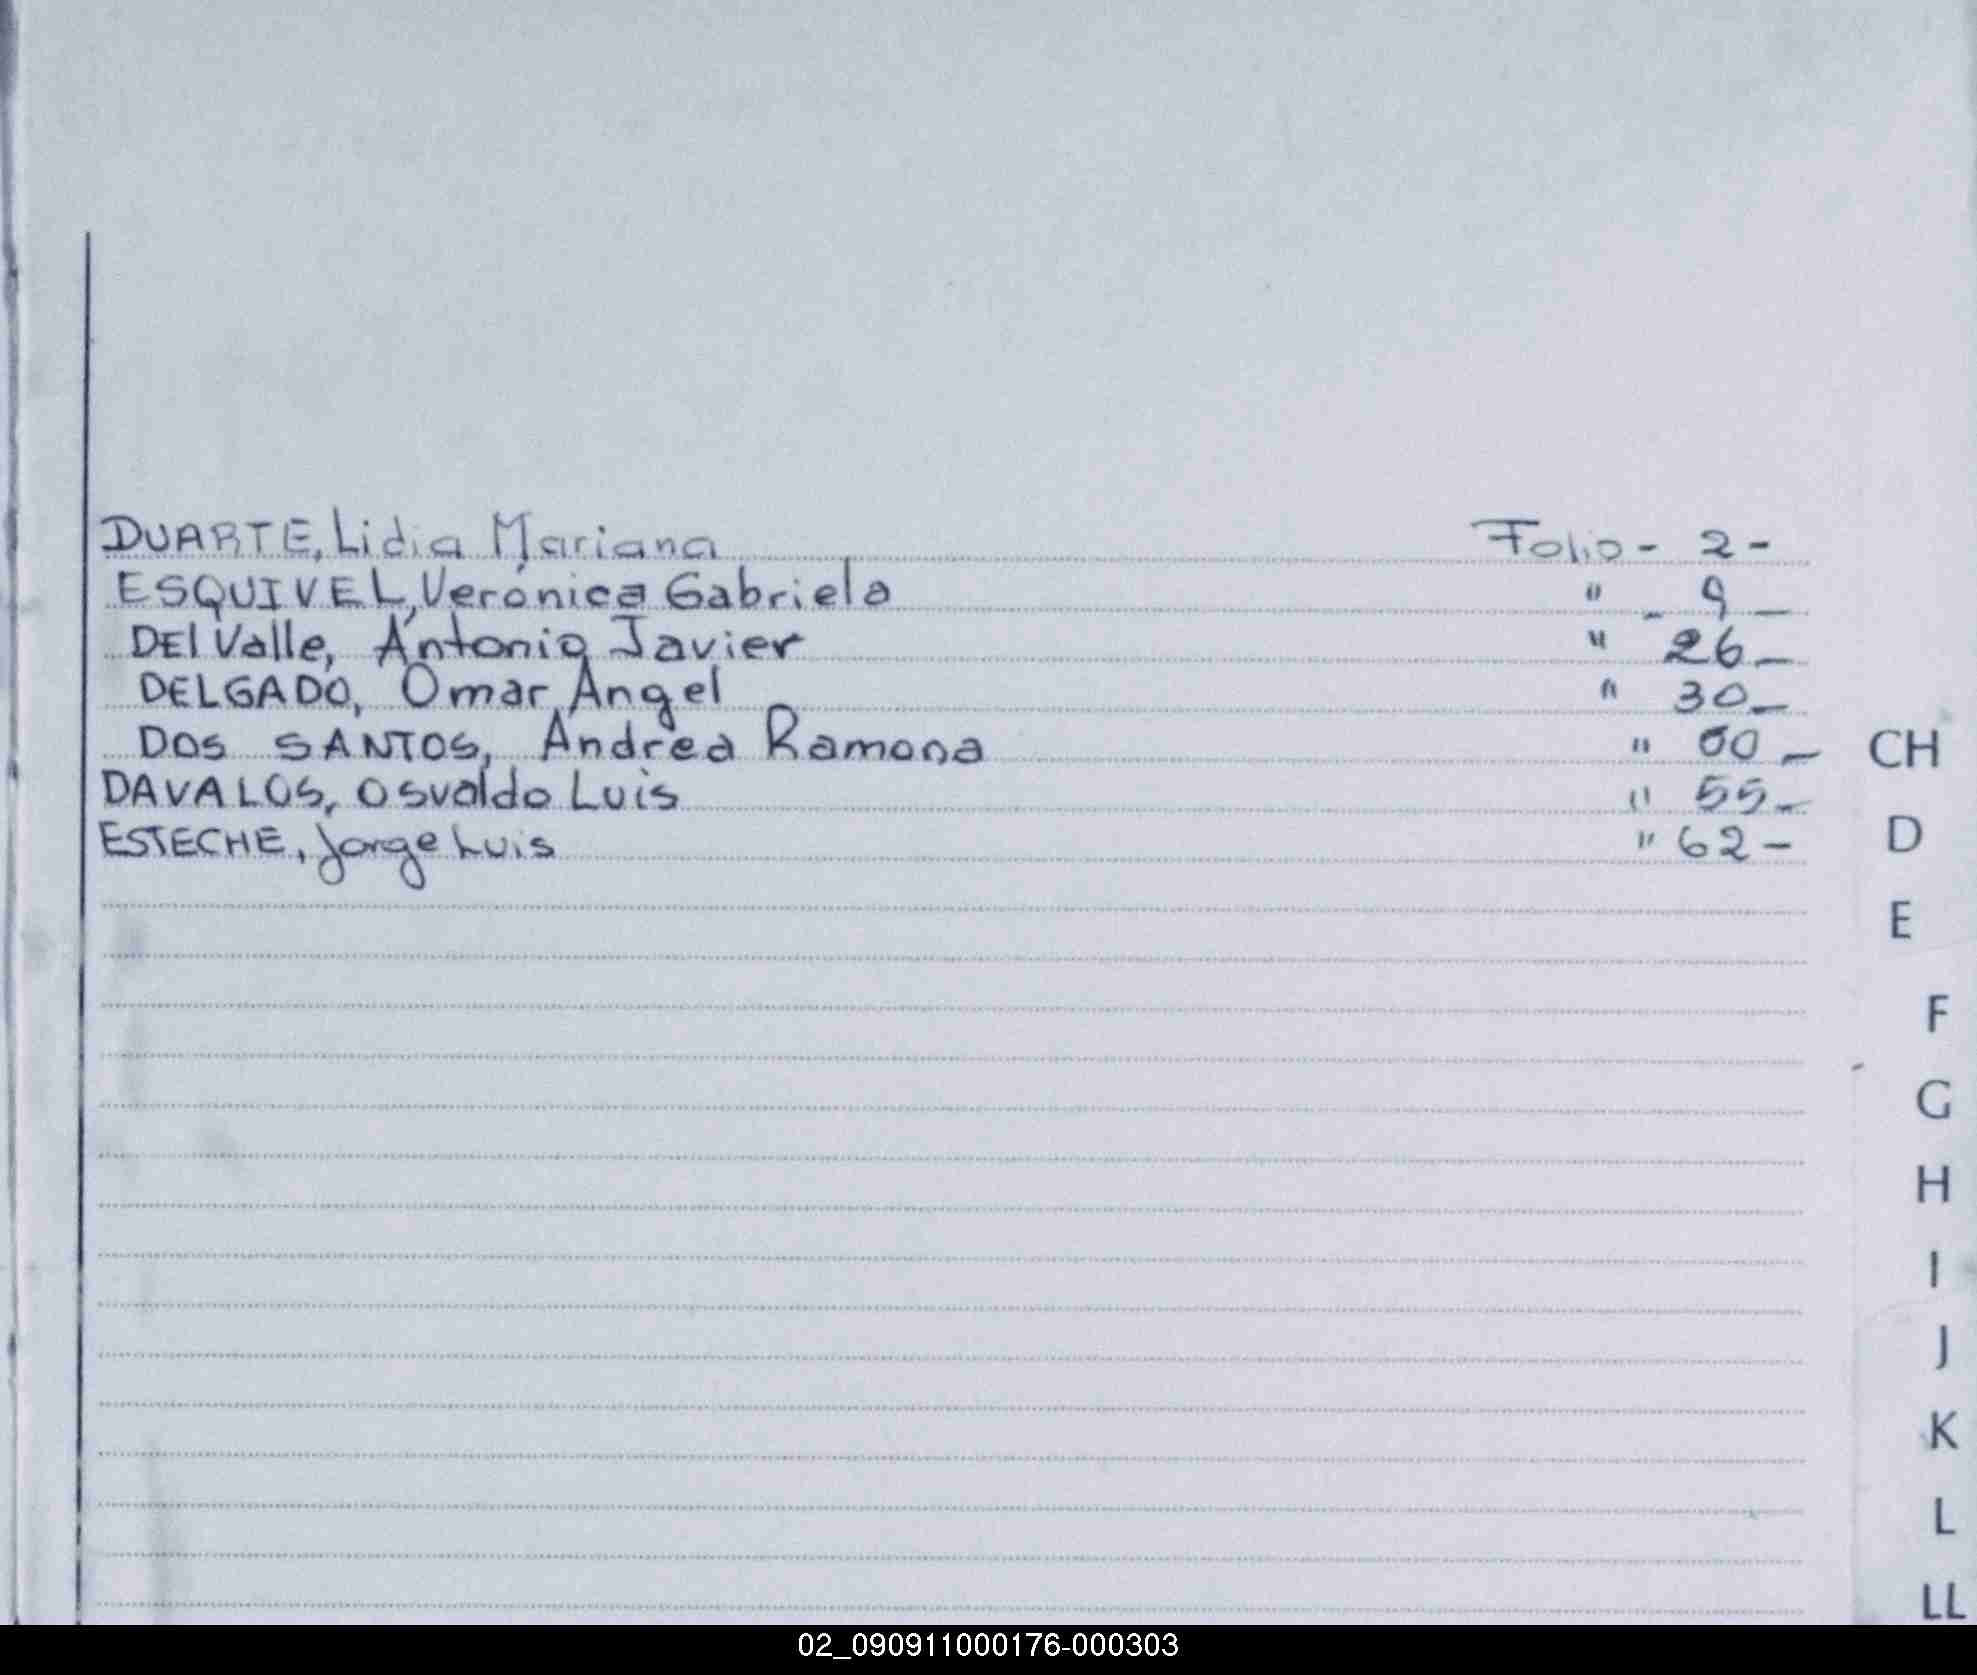 DUARTE, Lidia Mariana Folio - 2 -
ESQUIVEL, Verónica Gabriela " - 9 -
DEl Valle, Antonio Javier " 26 -
DELGADO, Omar Angel " 30 -
DOS SANTOS, Andrea Ramona " 00 -
DAVALOS, Osvaldo Luis " 55 -
ESTECHE, Jorge Luis " 62 -
CH
D
E
F
G
H
I
J
K
L
LL
02_090911000176-000303